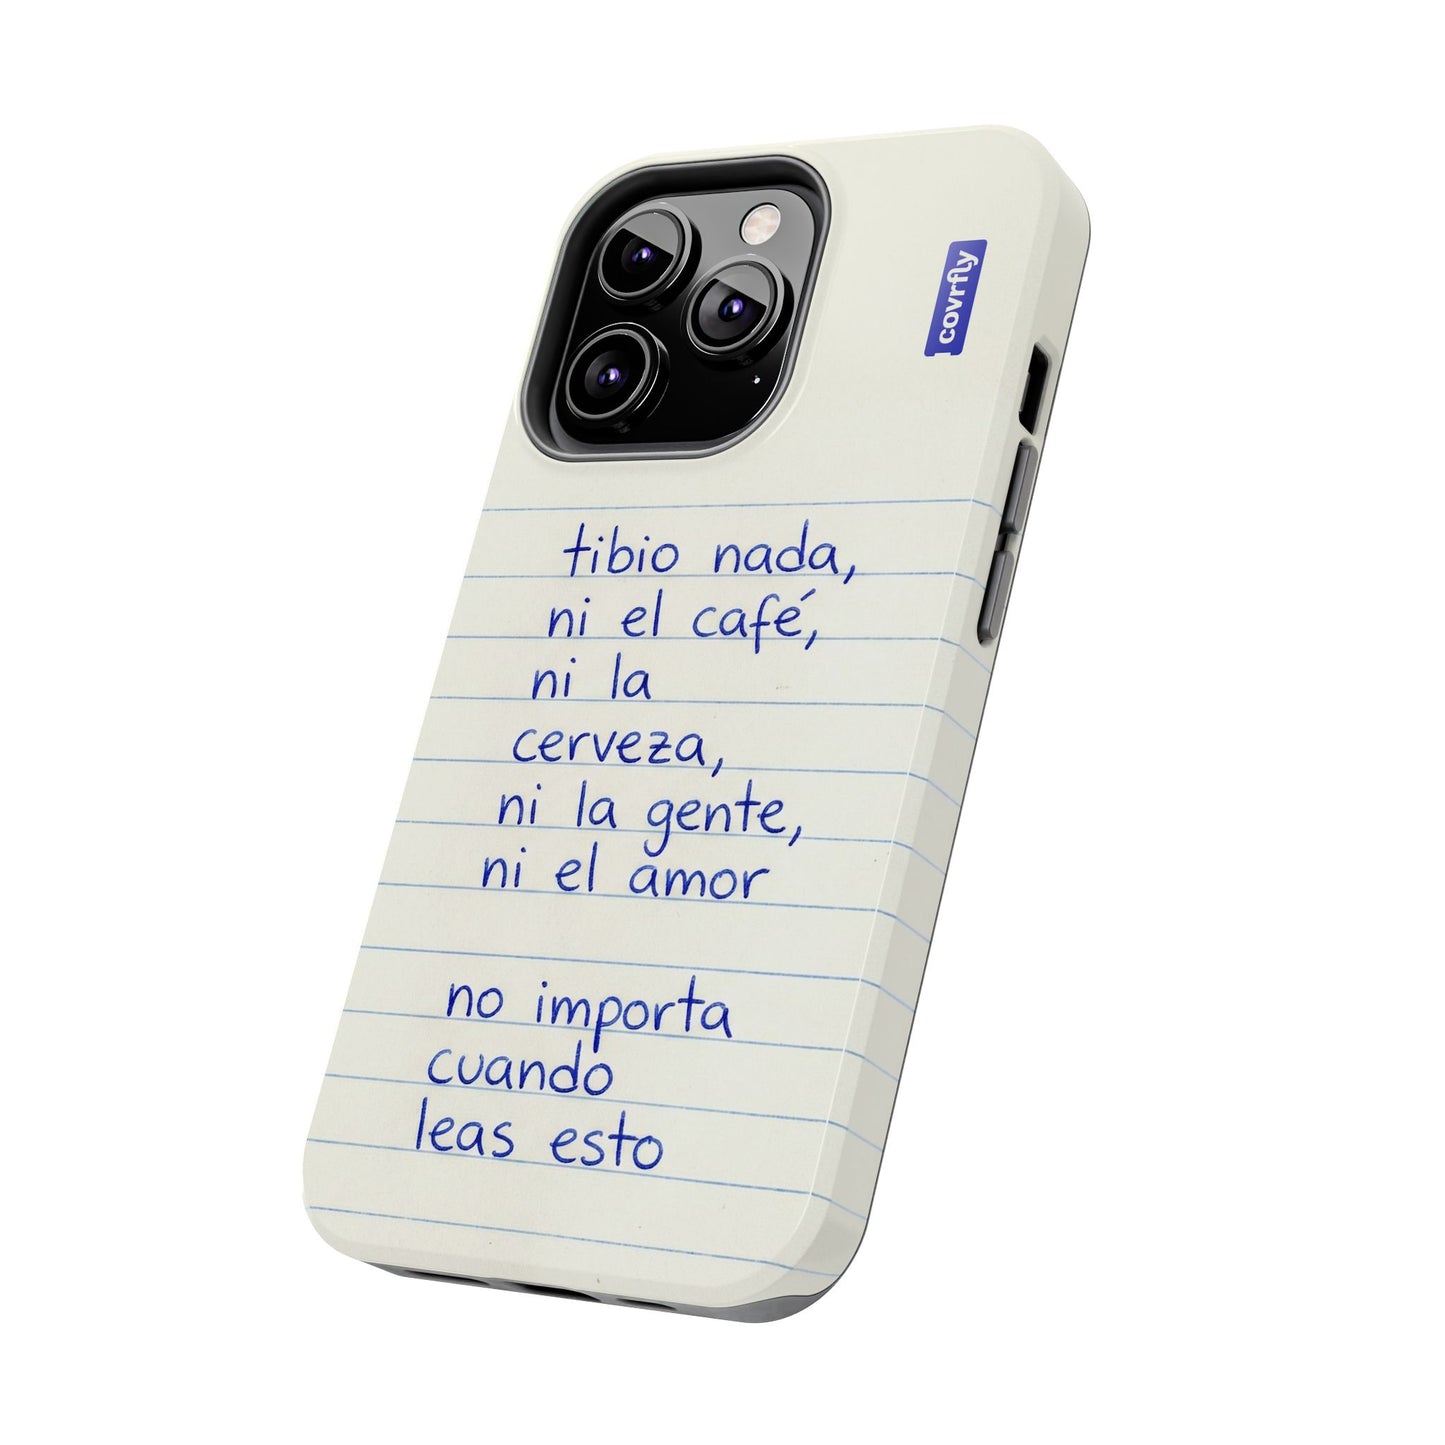 covrfly
tibio nada,
ni el café,
ni la
cerveza,
ni la gente,
ni el amor
no importa
cuando
leas esto